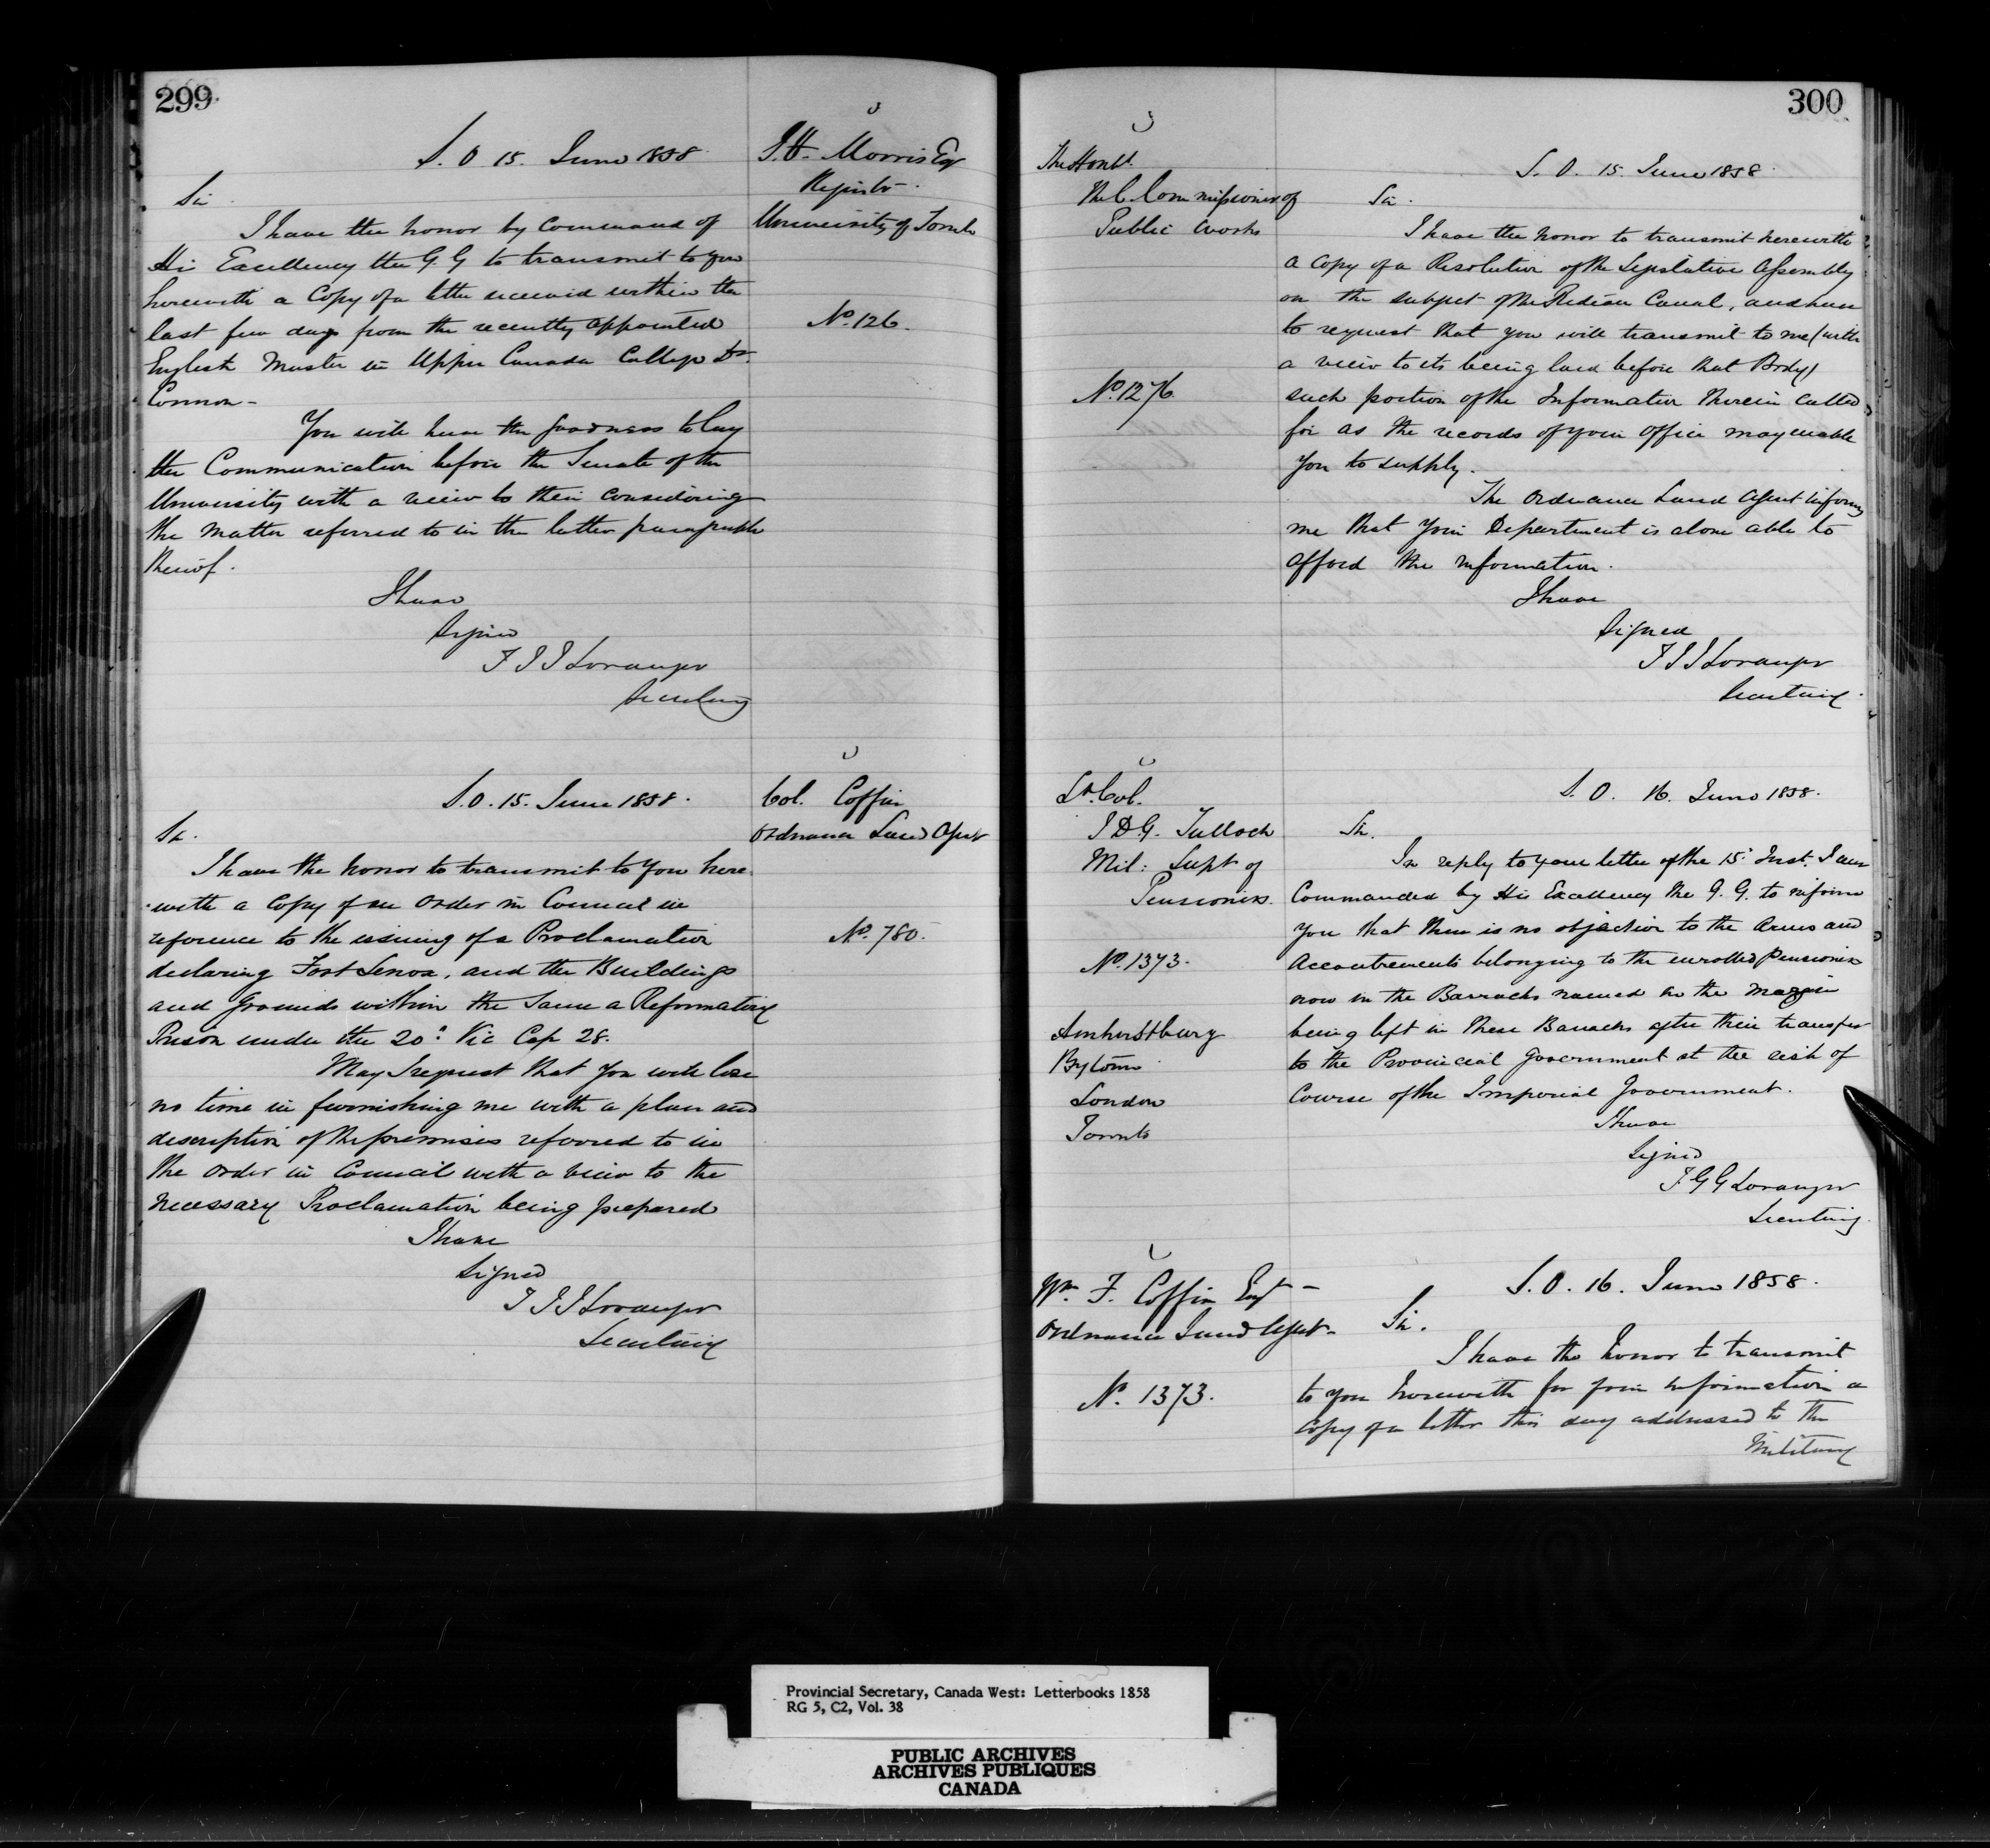 299
S. O 15. June 1858.
J. H. Morris Esq
Registr.
University of Toronto
No. 126.
Sir
I have the honor by Command of
His Excellency the G. G to transmit to you
herewith a Copy of a letter received within the
last few days from the recently appointed
English Master in Upper Canada College Dr.
Connon—
You will have the goodness to lay
the Communication before the Senate of the
University with a view to their considering
the matter referred to in the latter paragraph
thereof.
I have
Signed
T J J Loranger
Secretary
S. O. 15. June 1858.
Col. Coffin
Ordnance Land Agent
No. 780.
Sir.
I have the honor to transmit to you here
with a Copy of an Order in Council in
reference to the issuing of a Proclamation
declaring Fort Lenox, and the Buildings
and Grounds within the same a Reformatory
Prison under the 20th Vic Cap 28.
May I request that you will lose
no time in furnishing me with a plan and
description of the premises referred to in
the Order in Council with a view to the
necessary Proclamation being prepared
I have
Signed
T J J Loranger
Secretary
300
The Honble.
The Commissioner of
Public Works
No. 1276.
S. O. 15. June 1858.
Sir.
I have the honor to transmit herewith
a copy of a Resolution of the Legislative Assembly
on the subject of the Rideau Canal, and have
to request that you will transmit to me (with
a view to its being laid before that Body)
such portion of the Information therein called
for as the records of your Office may enable
you to supply.
The Ordnance Land Agent informs
me that your Department is alone able to
afford the information.
I have
Signed
T J J Loranger
Secretary.
Lt. Col.
J D G. Tulloch
Mil: Supt of
Pensioners.
No. 1373.
Amherstburg
Bytown
London
Toronto
S. O. 16. June 1858.
Sir.
In reply to your letter of the 15. Inst. I am
Commanded by His Excellency the G. G. to inform
you that there is no objection to the Arms and
Accoutrements belonging to the enrolled Pensioners
now in the Barracks named in the Margin
being left in these Barracks after their transfer
to the Provincial Government at the risk of
Course of the Imperial Government.
I have
Signed
T G G Loranger
Secretary.
Wm. F. Coffin Esq—
Ordnance Land Agent—
No. 1373.
S. O. 16. June 1858.
Sir.
I have the honor to transmit
to you herewith for your information a
copy of a letter this day addressed to the
Military
Provincial Secretary, Canada West: Letterbooks 1858
RG 5, C2, Vol. 38
PUBLIC ARCHIVES
ARCHIVES PUBLIQUES
CANADA